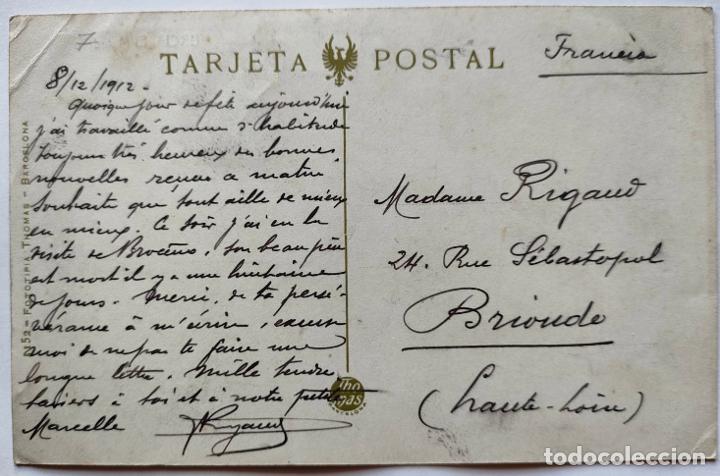 7
TARJETA POSTAL
Francia
8/12/1912 -
Quoique jour de fête aujourd'hui
j'ai travaillé comme d'habitude
toujours très heureux des bonnes
nouvelles reçues ce matin
Souhaite que tout aille de mieux
en mieux. Ce soir j'ai eu la
visite de son beau père
est mort il y a une huitaine
de jours. Merci, de ta persé-
vérance à m'écrire, excuse
moi de ne pas te faire une
longue lettre. Mille tendres
baisers à toi et à notre petite
Marcelle
Madame Rigaud
24. Rue Sébastopol
Brioude
(Haute-Loire)
Thomas
BARCELONA
2152 - FOTOTIPIA THOMAS - BARCELONA